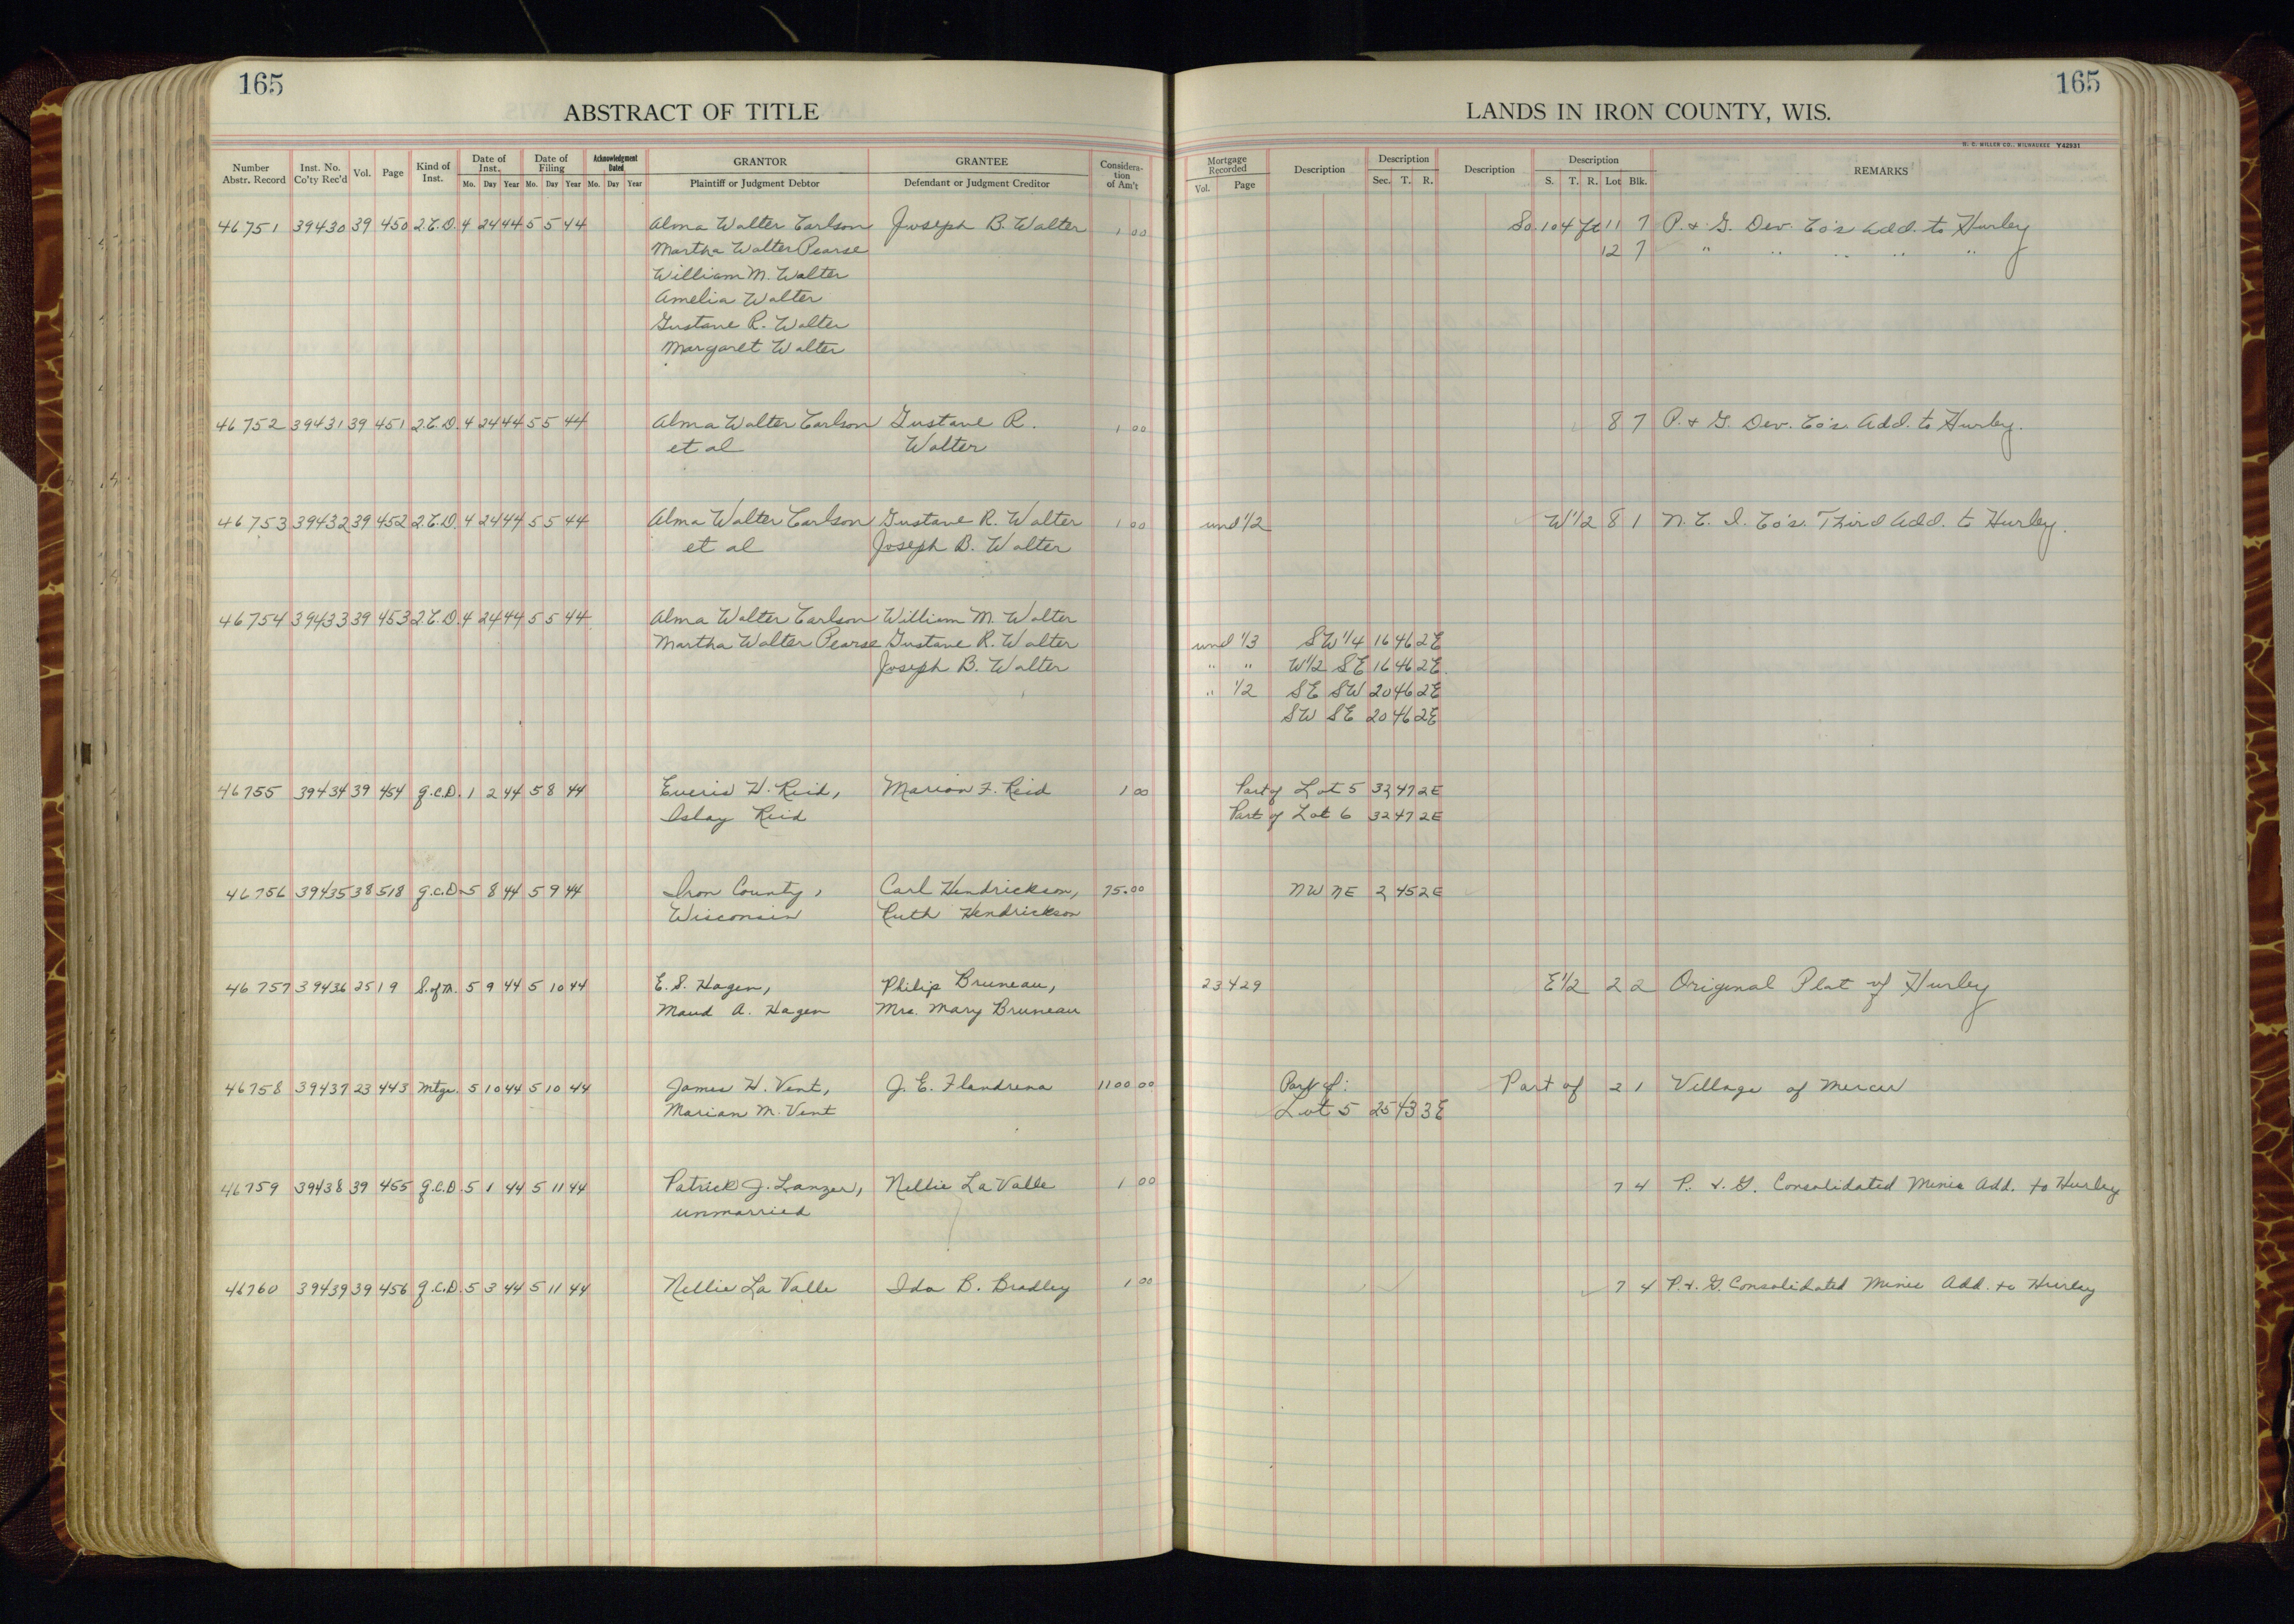 165
ABSTRACT OF TITLE
Number Abstr. Record | Inst. No. Co'ty Rec'd | Vol. | Page | Kind of Inst. | Date of Inst. Mo. Day Year | Date of Filing Mo. Day Year | Acknowledgment Dated Mo. Day Year | GRANTOR Plaintiff or Judgment Debtor | GRANTEE Defendant or Judgment Creditor | Consideration of Am't
46751 39430 39 450 2.C.D. 4 24 44 5 5 44 Alma Walter Carlson Joseph B. Walter 1 00
Martha Walter Pearse
William M. Walter
Amelia Walter
Gustave R. Walter
Margaret Walter
46752 39431 39 451 2.C.D. 4 24 44 5 5 44 Alma Walter Carlson Gustave R. 1 00
et al Walter
46753 39432 39 452 2.C.D. 4 24 44 5 5 44 Alma Walter Carlson Gustave R. Walter 1 00
et al Joseph B. Walter
46754 39433 39 453 2.C.D. 4 24 44 5 5 44 Alma Walter Carlson William M. Walter
Martha Walter Pearse Gustave R. Walter
Joseph B. Walter
46755 39434 39 454 q.C.D. 1 2 44 5 8 44 Everis H. Reid, Marion F. Reid 1 00
Islay Reid
46756 39435 38 518 q.C.D. 5 8 44 5 9 44 Iron County, Carl Hendrickson, 75.00
Wisconsin Ruth Hendrickson
46757 39436 25 19 S. of M. 5 9 44 5 10 44 E. S. Hagen, Philip Bruneau,
Maud A. Hagen Mrs. Mary Bruneau
46758 39437 23 443 Mtge. 5 10 44 5 10 44 James H. Vent, J. E. Flandrena 1100 00
Marian M. Vent
46759 39438 39 455 q.C.D. 5 1 44 5 11 44 Patrick J. Lanzer, Nellie La Valle 1 00
unmarried
46760 39439 39 456 q.C.D. 5 3 44 5 11 44 Nellie La Valle Ida B. Bradley 1 00
165
LANDS IN IRON COUNTY, WIS.
H. C. MILLER CO., MILWAUKEE Y42931
Mortgage Recorded Vol. Page | Description | Description Sec. T. R. | Description | Description S. T. R. Lot Blk. | REMARKS
So. 104 ft 11 7 P. & G. Dev. Co's Add. to Hurley
12 7 " " " " "
8 7 P. & G. Dev. Co's. Add. to Hurley.
und 1/2 W 1/2 8 1 N. C. I. Co's. Third Add. to Hurley.
und 1/3 SW 1/4 16 46 2E
" " W 1/2 SE 16 46 2E.
" 1/2 SE SW 20 46 2E
SW SE 20 46 2E
Part of Lot 5 32 47 2E
Part of Lot 6 32 47 2E
NW NE 2 45 2E
23 429 E 1/2 2 2 Original Plat of Hurley
Part of: Part of 2 1 Village of Mercer
Lot 5 25 43 3E
7 4 P. & G. Consolidated Mines Add. to Hurley
7 4 P. & G. Consolidated Mines Add. to Hurley